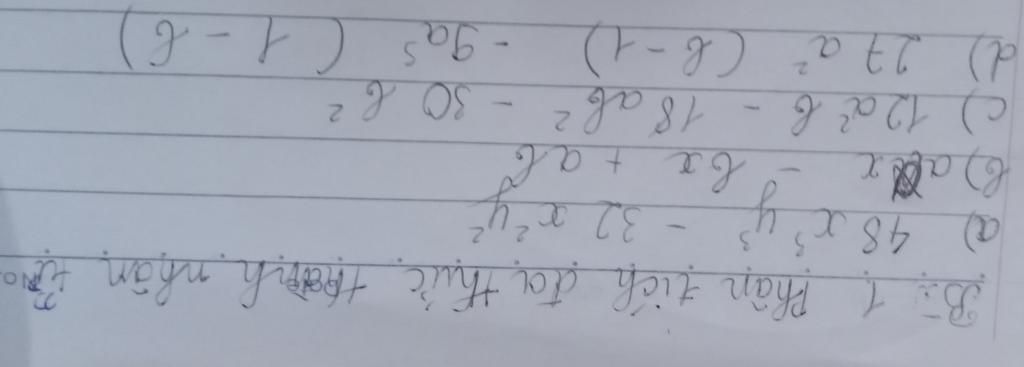 Bài 1. Phân tích đa thức thành nhân tử
a) 48x³y³ - 32x²y²
b) ax - bx + ab
c) 12a²b - 18ab² - 30b²
d) 27a² (b-1) - 9a³ (1-b)